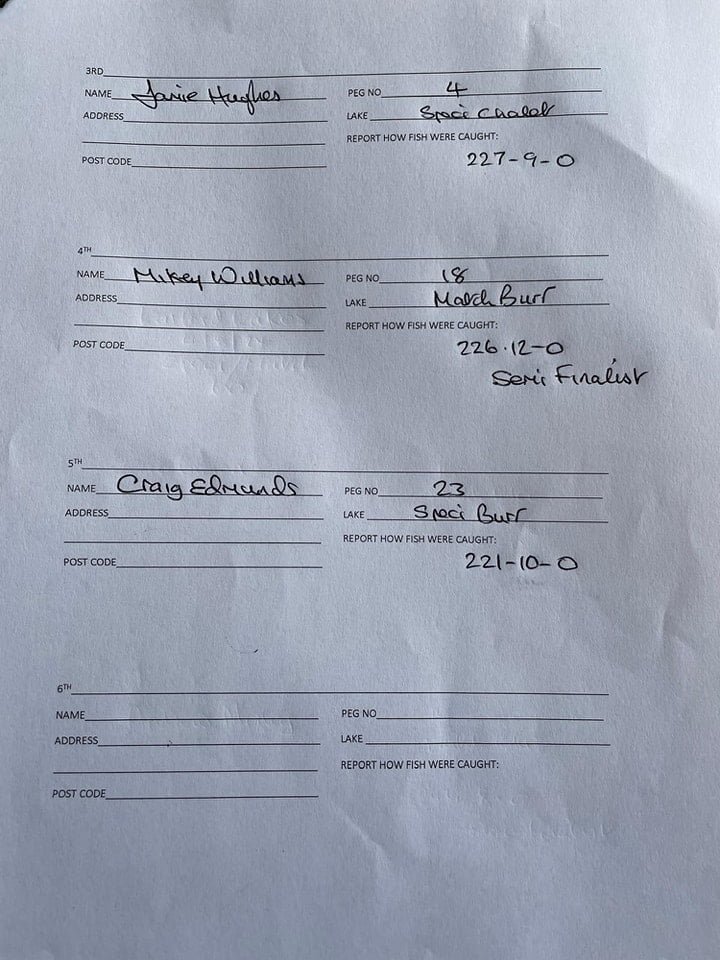 3RD
NAME Jamie Hughes PEG NO 4
ADDRESS LAKE Speci Chalet
REPORT HOW FISH WERE CAUGHT:
POST CODE 227-9-0
4TH
NAME Mikey Williams PEG NO 18
ADDRESS LAKE Match Burr
REPORT HOW FISH WERE CAUGHT:
POST CODE 226.12-0
Semi Finalist
5TH
NAME Craig Edmunds PEG NO 23
ADDRESS LAKE Speci Burr
REPORT HOW FISH WERE CAUGHT:
POST CODE 221-10-0
6TH
NAME PEG NO
ADDRESS LAKE
REPORT HOW FISH WERE CAUGHT:
POST CODE